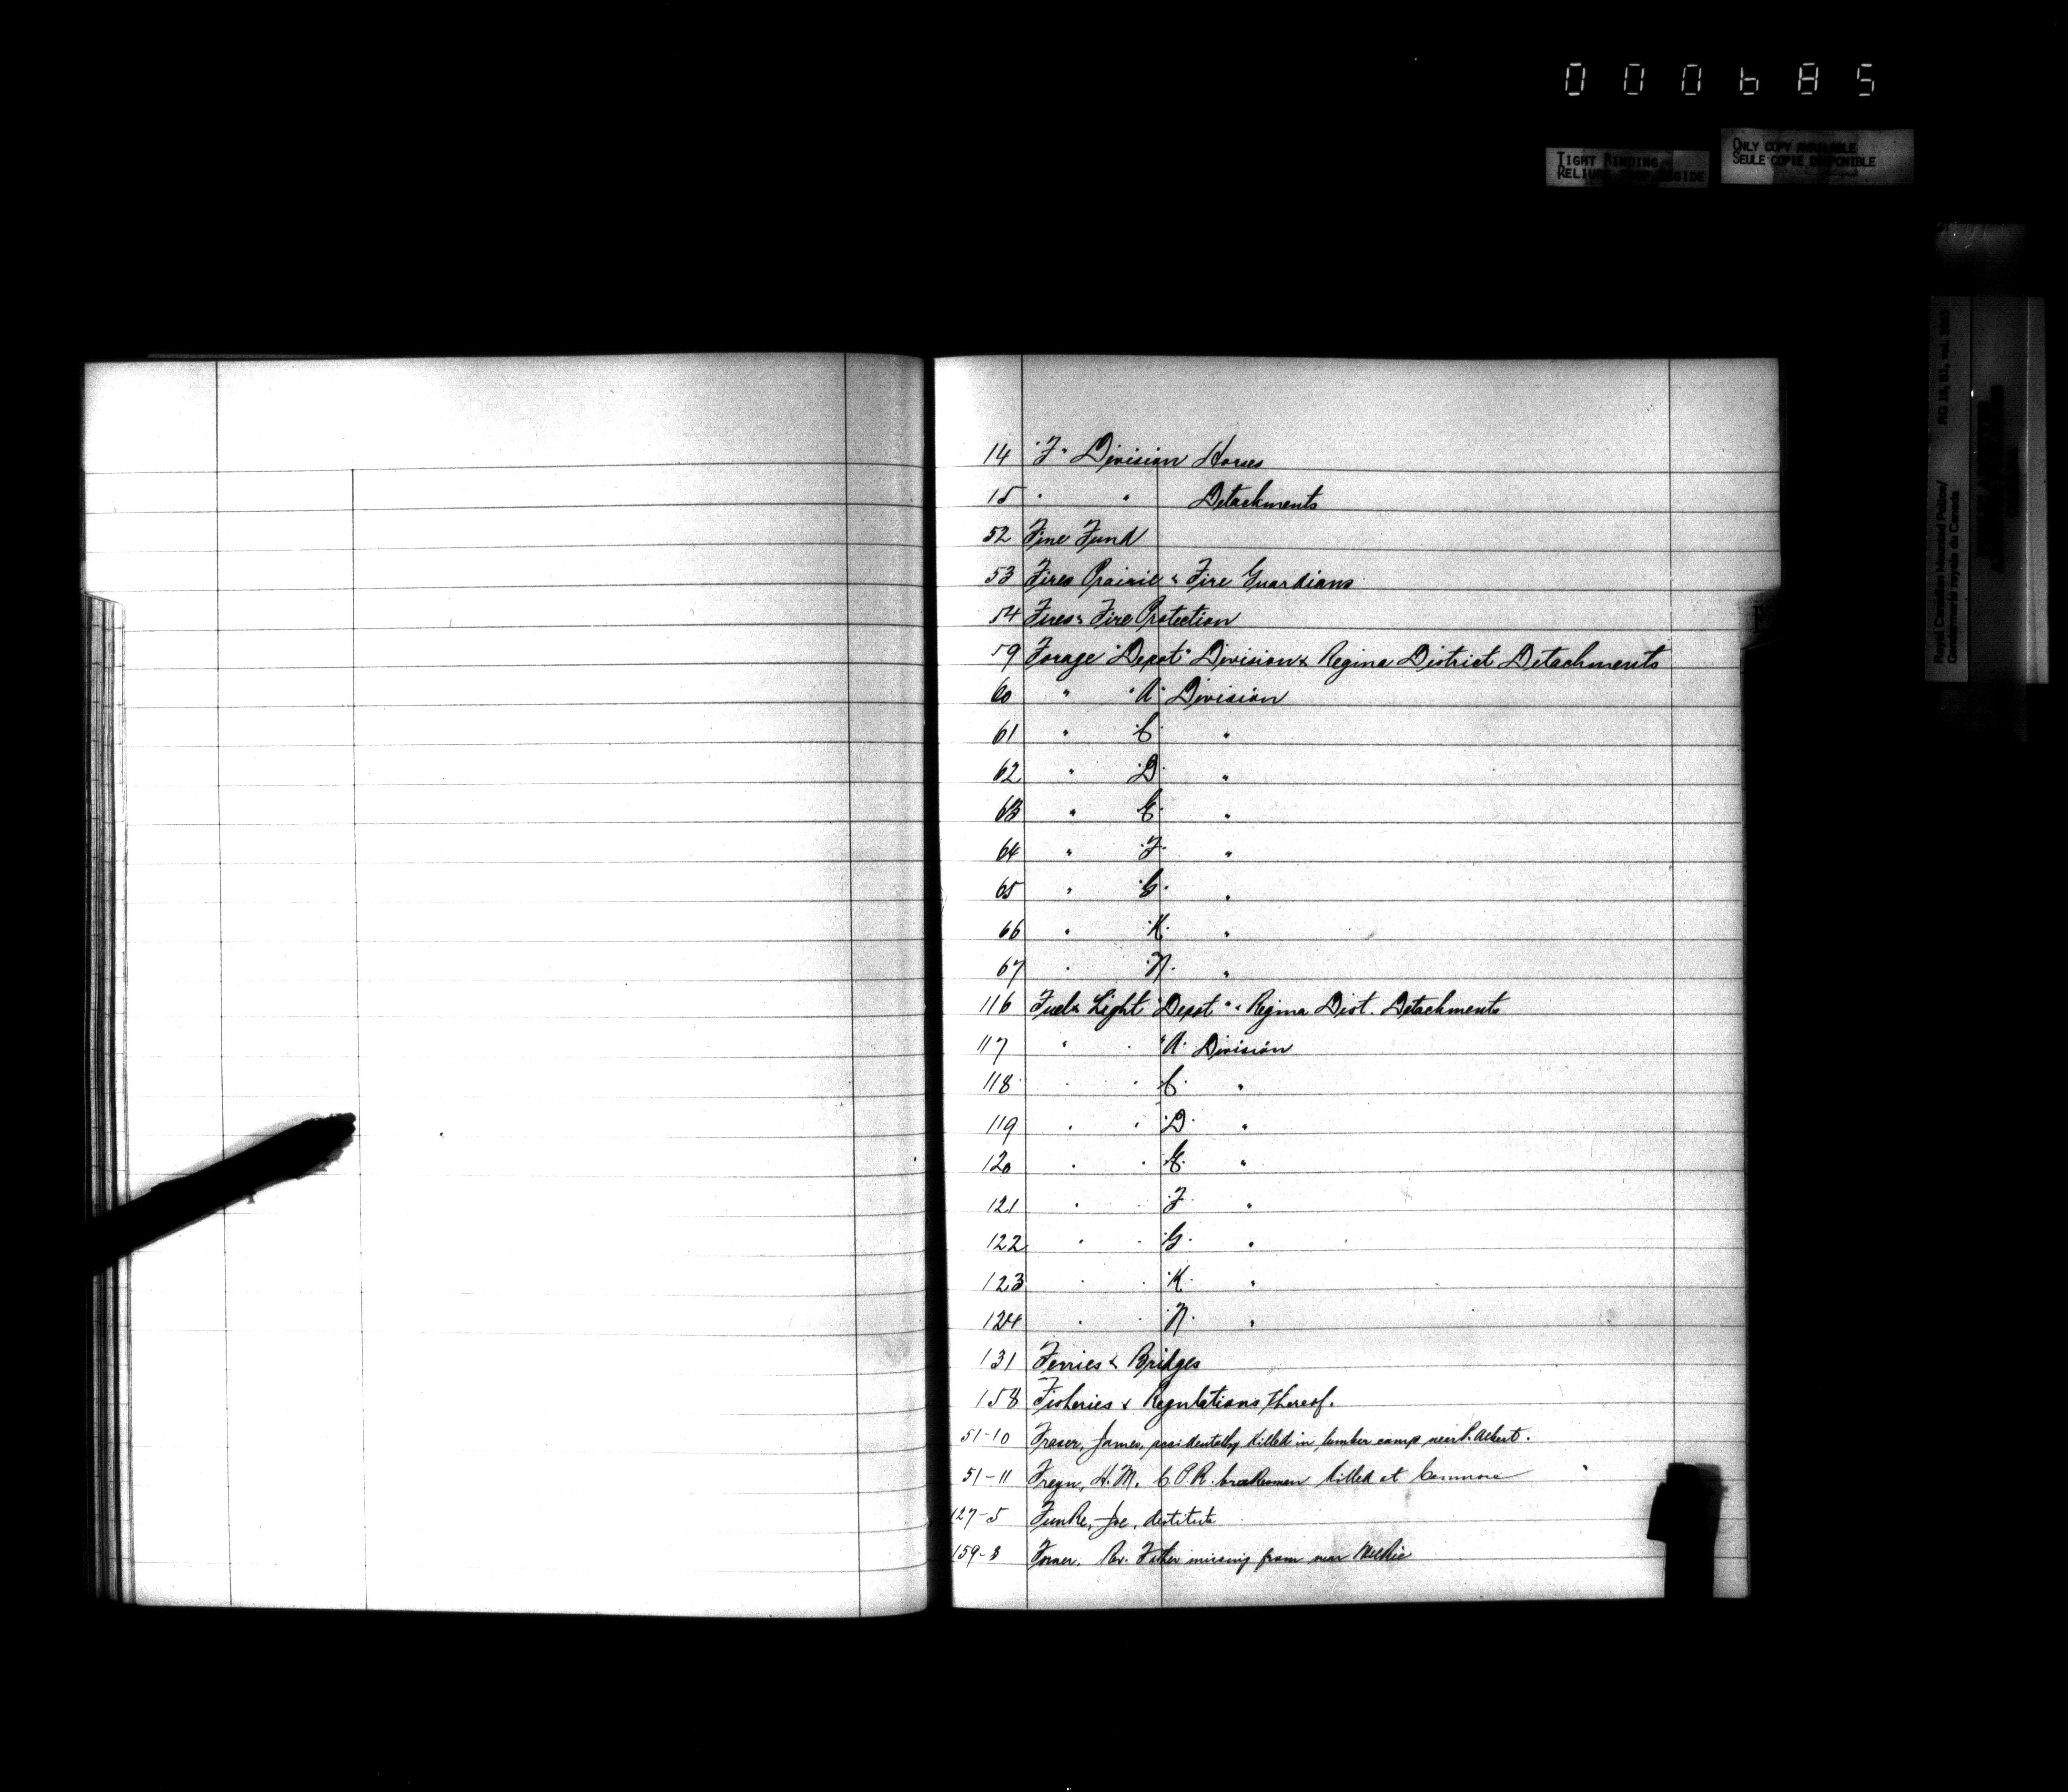 000685
TIGHT BINDING
RELIURE TROP RIGIDE
ONLY COPY AVAILABLE
SEULE COPIE DISPONIBLE
Royal Canadian Mounted Police/
Gendarmerie royale du Canada
RG 18, B1, vol.
14 "F" Division Horses
15 " " Detachments
52 Fine Fund
53 Fires Prairie & Fire Guardians
54 Fires & Fire Protection
59 Forage "Depot" Division & Regina District Detachments
60 " "A" Division
61 " "C" "
62 " "D" "
63 " "E" "
64 " "F" "
65 " "G" "
66 " "K" "
67 " "N" "
116 Fuel & Light "Depot" & Regina Dist. Detachments
117 " " "A" Division
118 " " "C" "
119 " " "D" "
120 " " "E" "
121 " " "F" "
122 " " "G" "
123 " " "K" "
124 " " "N" "
131 Ferries & Bridges
158 Fisheries & Regulations thereof.
51-10 Fraser, James, accidentally killed in lumber camp near P. Albert.
51-11 Fregn, H. M. C.P.R. brakeman killed at Canmore
127-5 Funke, Joe, destitute
159-3 Rev. Father missing from near